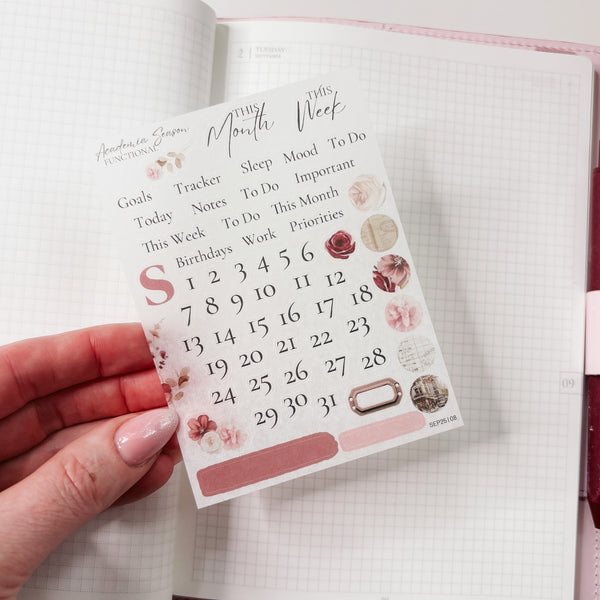 2 TUESDAY
Academia Season
FUNCTIONAL
THIS
Month
THIS
Week
Goals Tracker Sleep Mood To Do
Today Notes To Do Important
This Week To Do This Month
Birthdays Work Priorities
S
1 2 3 4 5 6
7 8 9 10 11 12
13 14 15 16 17 18
19 20 21 22 23
24 25 26 27 28
29 30 31
SEP25|08
09